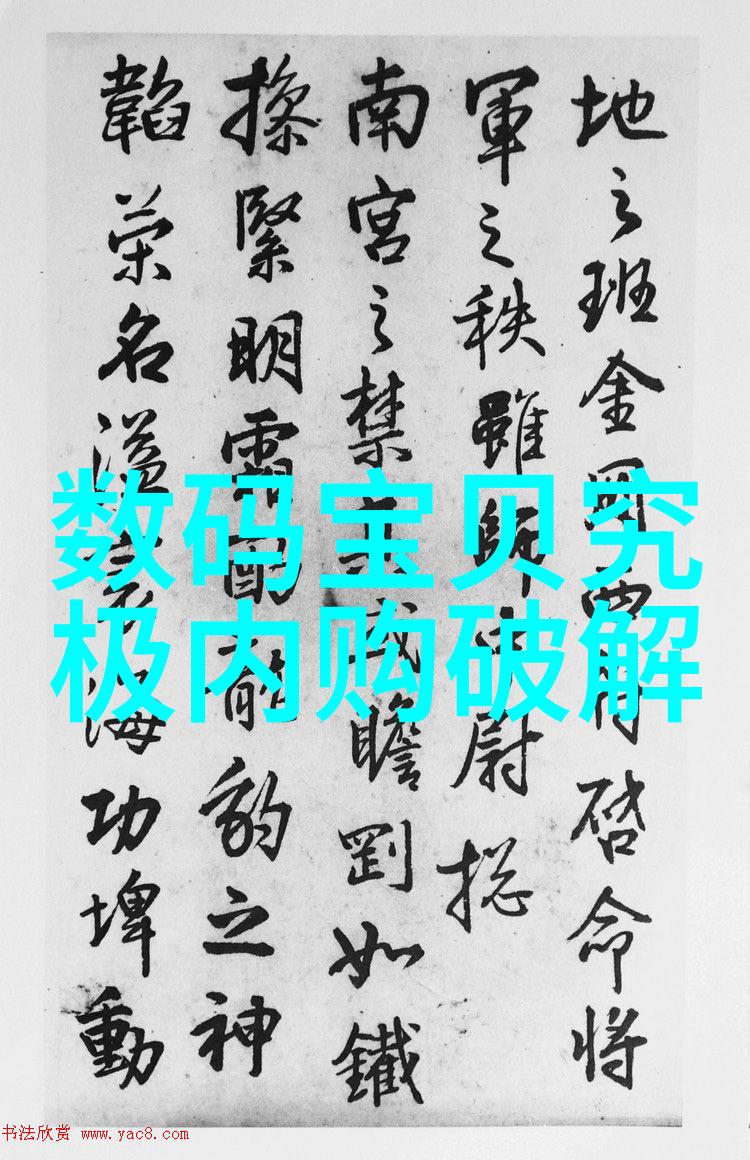 地之班金啓命将
軍之秩雖師中尉捴
南宮之禁瞻如鐵
操緊明霜豹之神
韜榮名溢海功埤動
数码宝贝究
极内购破解
书法欣赏 www.yac8.com